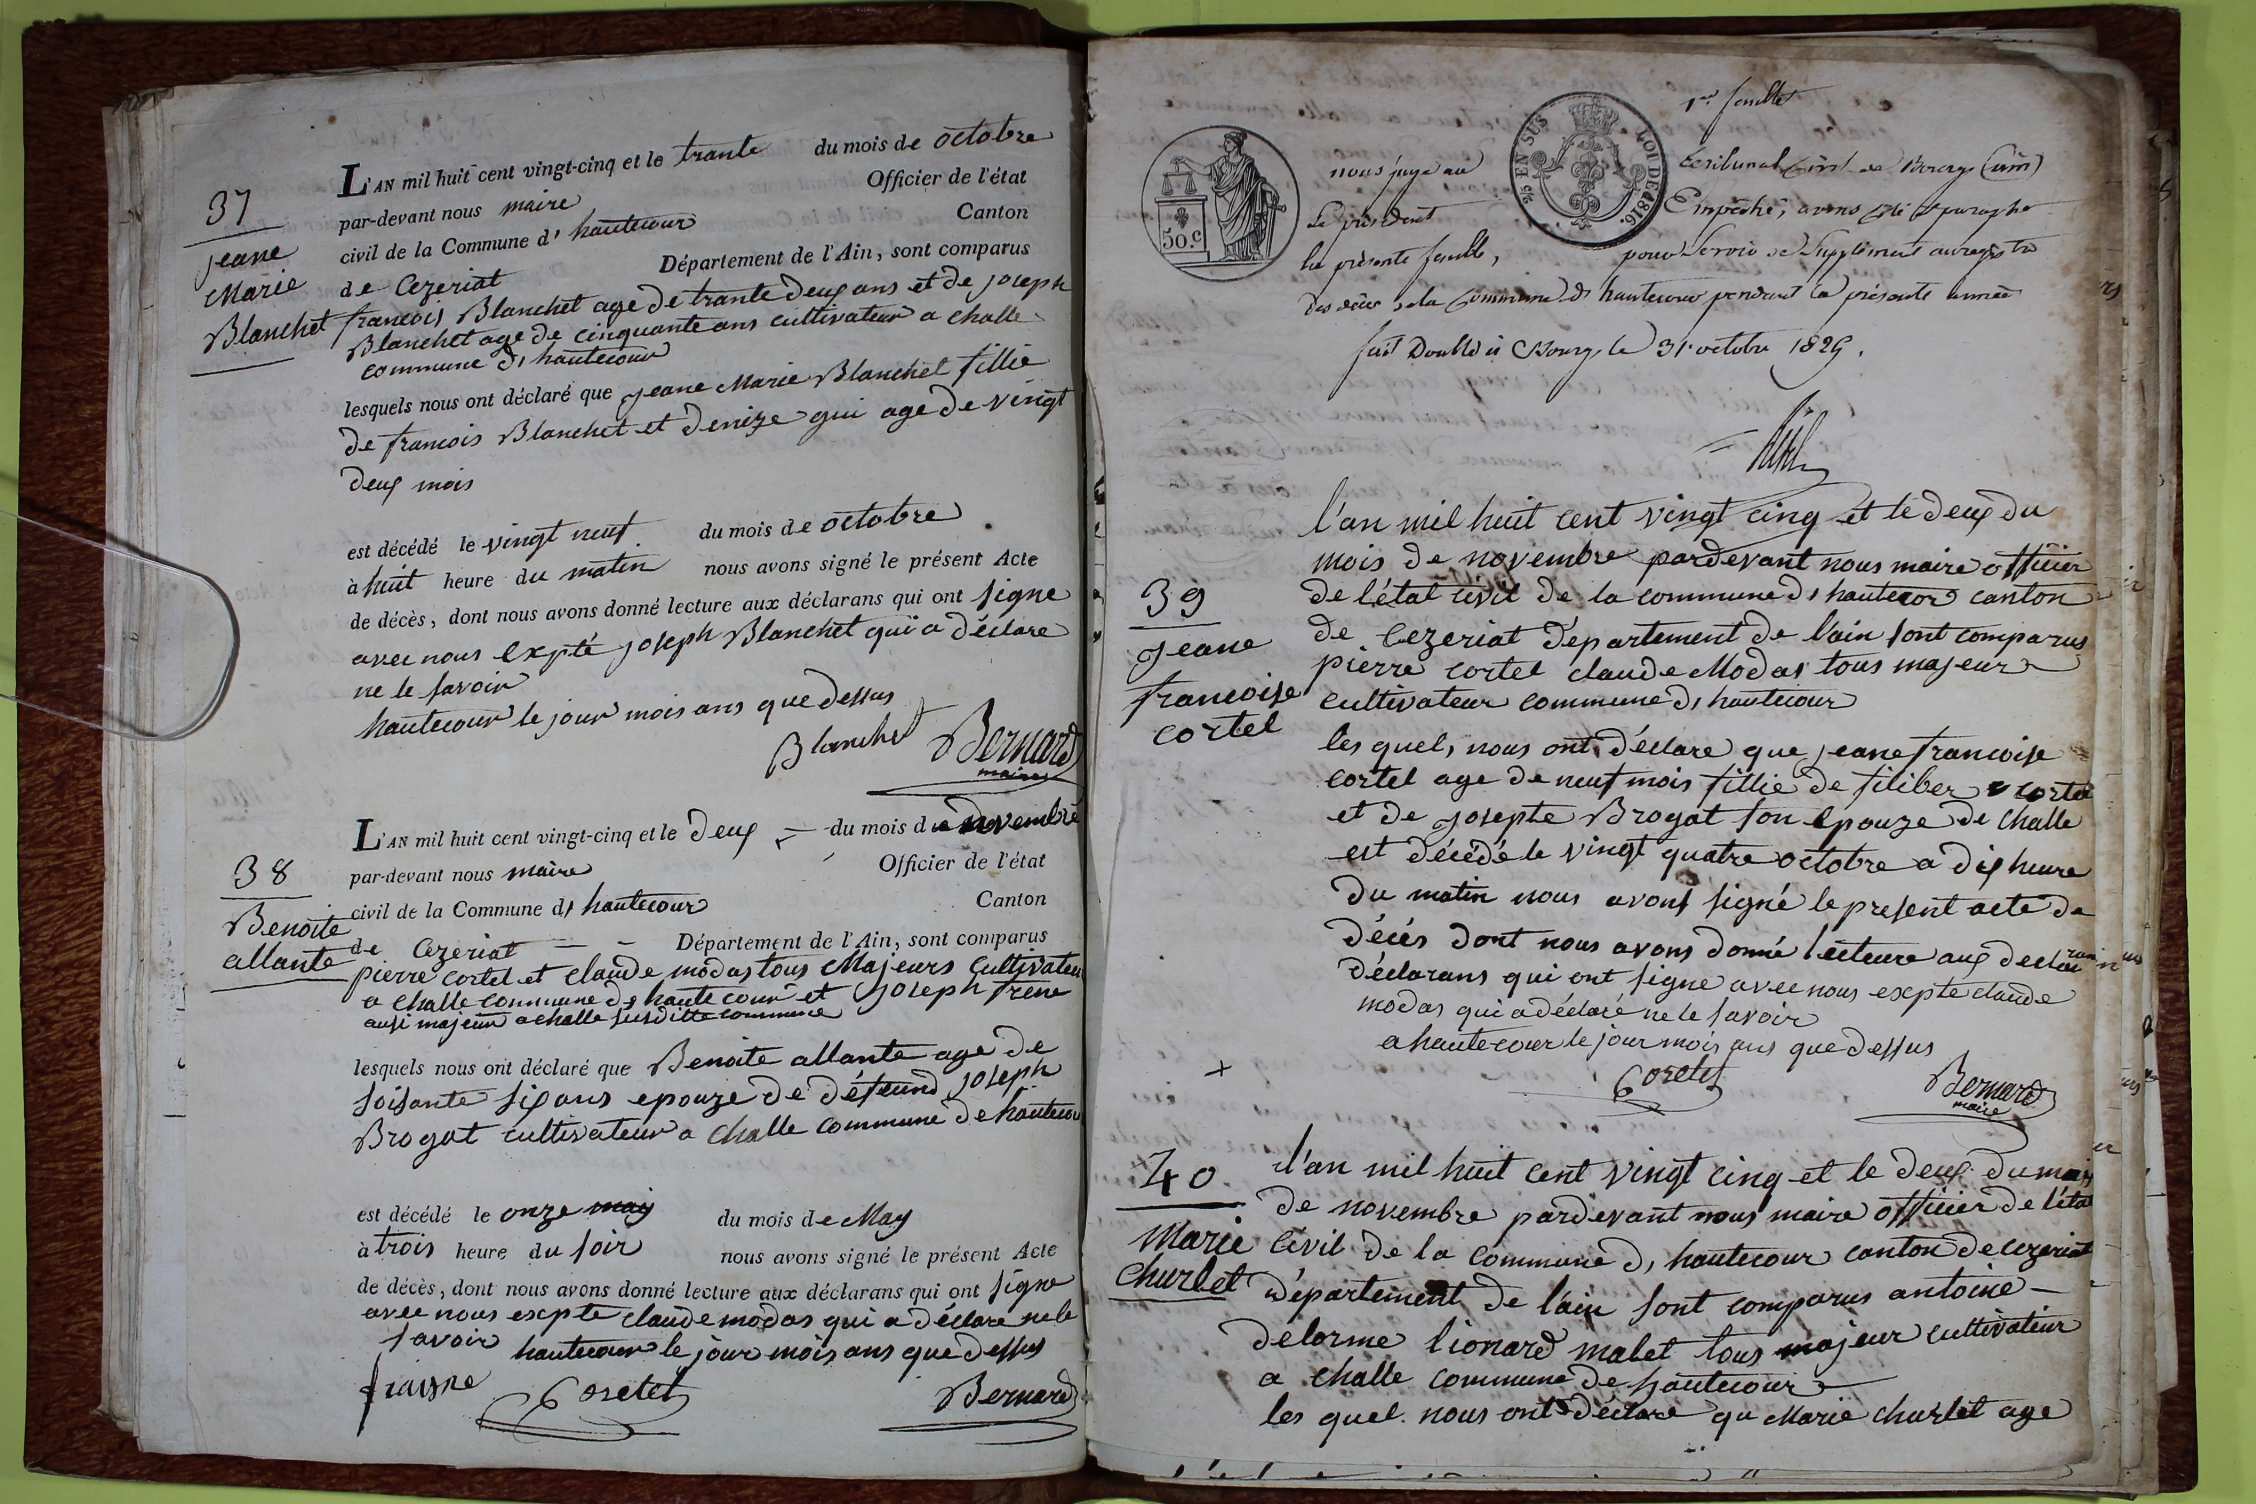 37
jeane
Marie
Blanchet
L'AN mil huit cent vingt-cinq et le trante du mois de octobre
par-devant nous maire Officier de l'état
civil de la Commune d' hautecour Canton
de Cezeriat Département de l'Ain, sont comparus
francois Blanchet age de trante deux ans et de joseph
Blanchet age de cinquante ans cultivateur a challe
commune d, hautecour
lesquels nous ont déclaré que jeane Marie Blanchet fillie
de francois Blanchet et denize gui age de vingt
deux mois
est décédé le vingt neuf du mois de octobre
à huit heure du matin nous avons signé le présent Acte
de décès, dont nous avons donné lecture aux déclarans qui ont signe
avec nous expté joseph Blanchet qui a déclare
ne le savoir
hautecour le jour mois ans que dessus
Blanchet Bernard
maire
38
Benoite
allante
L'AN mil huit cent vingt-cinq et le deux du mois de novembre
par-devant nous maire Officier de l'état
civil de la Commune d, hautecour Canton
de Cezeriat Département de l'Ain, sont comparus
pierre cortel et claude modas tous Majeurs Cultivateu
a challe commune de hautecour et joseph frene
ausi majeur a challe susditte commune
lesquels nous ont déclaré que Benoite allante age de
soisante six ans epouze de défeund joseph
Brogat cultivateur a challe commune de hautecou
est décédé le onze may du mois de May
à trois heure du soir nous avons signé le présent Acte
de décès, dont nous avons donné lecture aux déclarans qui ont signe
avec nous excpte claude modas qui a déclare ne le
savoir hautecour le jour mois ans que dessus
fraisne Coretel Bernard
1er feuillet
50.C
EN SUS LOI DE 1816.
nous juge au tribunal Civil de Bourg (ain)
Le président Empeché, avons coté & paraphé
la présente feuille, pour Servir de Supplément au registre
des décès de la Commune d, hautecour pendant la présente année
fait Double à Bourg le 31 octobre 1825.
39
jeane
francoise
cortel
l'an mil huit cent vingt cinq et le deux du
mois de novembre pardevant nous maire officier
de l'état civil de la commune d, hautecor canton
de Cezeriat departement de l'ain sont comparus
pierre cortel claude Modas tous majeur
cultivateur commune d, hautecour
les quel, nous ont déclare que jeane francoise
cortel age de neuf mois fillie de filiber cortel
et de josepte Brogat son epouze de challe
est décédé le vingt quatre octobre a dix heure
du matin nous avons signé le present acte de
décés dont nous avons donné lecteure aux
déclarans qui ont signe avec nous excpte claude
modas qui a déclaré ne le savoir
a hautecour le jour mois ans que dessus
Coretel Bernard
maire
40
Marie
Churlet
l'an mil huit cent vingt cinq et le deux du mois
de novembre pardevant nous maire officier de l'état
civil de la commune d, hautecour canton de cezeriat
département de l'ain sont comparus antoine
delorme lionard malet tous majeur cultivateur
a challe commune de hautecour
les quel nous ont déclare qu Marie churlet age